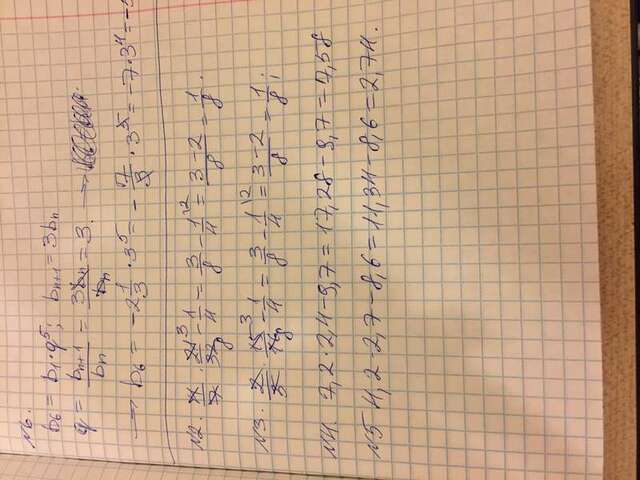 №6.
b₆ = b₁·q⁵; bₙ₊₁ = 3bₙ
q = bₙ₊₁/bₙ = 3bₙ/bₙ = 3. →
→ b₆ = -2 1/3 · 3⁵ = - 7/3 · 3⁵ = -7·3⁴ = -
№2. 4/7 · 21/32 - 1/4 = 3/8 - 1/4 = (3-2)/8 = 1/8.
№3. 2/5 · 15/16 - 1/4 = 3/8 - 1/4 = (3-2)/8 = 1/8;
№4. 7,2·2,4-9,7 = 17,28-9,7 = 7,58
№5 4,2·2,7-8,6 = 11,34-8,6 = 2,74.